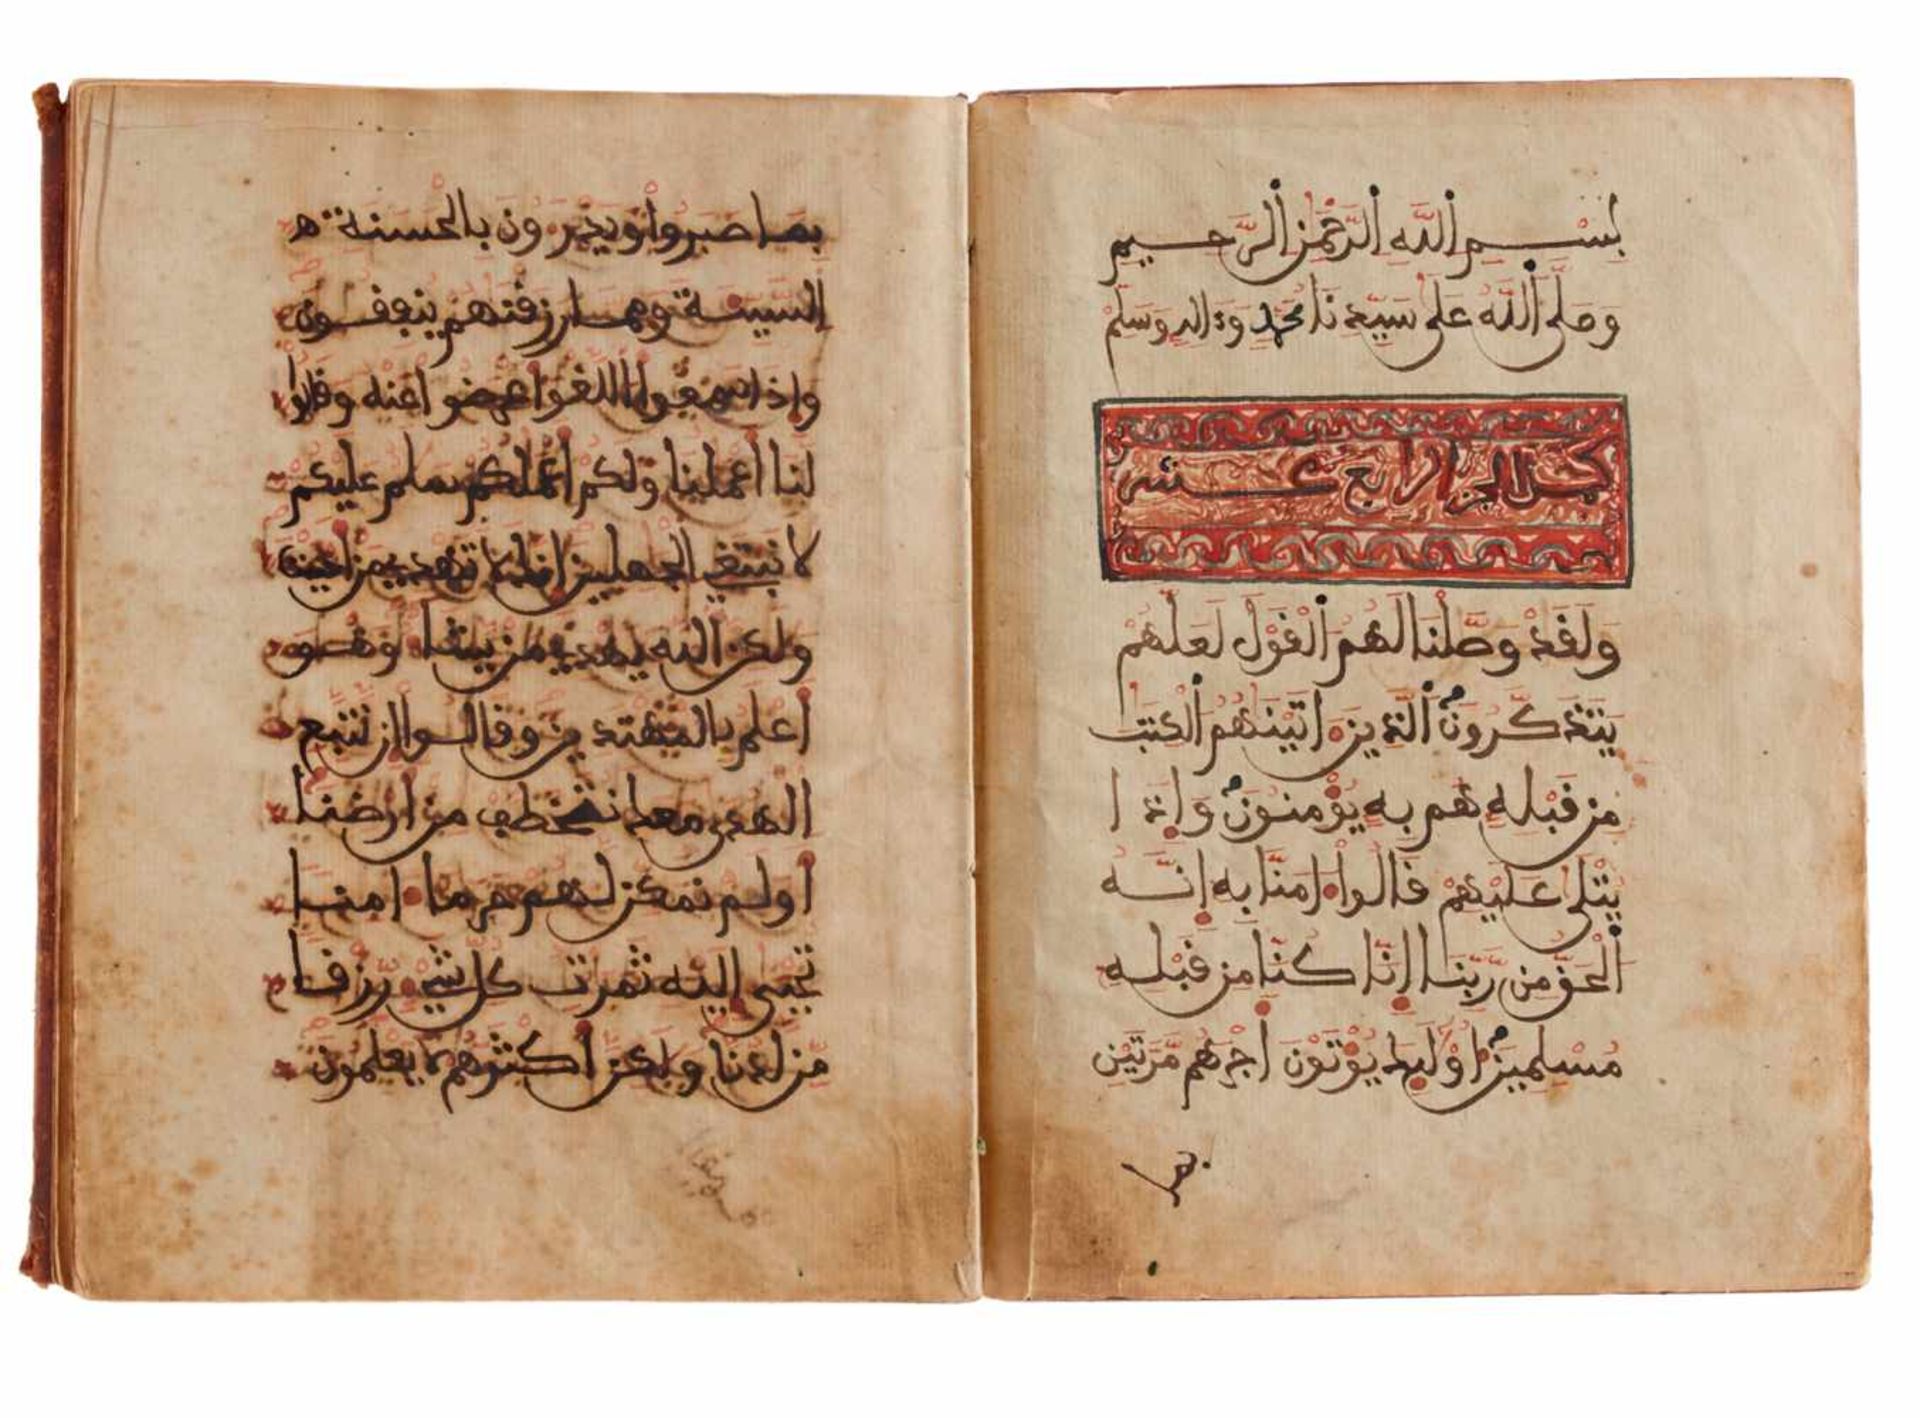 بسم الله الرحمن الرحيم
وصلى الله على سيدنا محمد وءاله وسلم
الجزء الرابع عشر
ولقد وصلنا لهم القول لعلهم
يتذكرون الذين ءاتينهم الكتب
من قبله هم به يؤمنون وإذا
يتلى عليهم قالوا ءامنا به إنه
الحق من ربنا إنا كنا من قبله
مسلمين أوليك يؤتون أجرهم مرتين
بما صبروا ويدرءون بالحسنة
السيية ومما رزقنهم ينفقون
وإذا سمعوا اللغو أعرضوا عنه وقالوا
لنا أعملنا ولكم أعملكم سلم عليكم
لا نبتغي الجهلين إنك لا تهدي من أحببت
ولكن الله يهدي من يشاء وهو
أعلم بالمهتدين وقالوا إن نتبع
الهدى معك نتخطف من أرضنا
أولم نمكن لهم حرما ءامنا
تجبى إليه ثمرت كل شيء رزقا
من لدنا ولكن أكثرهم لا يعلمون